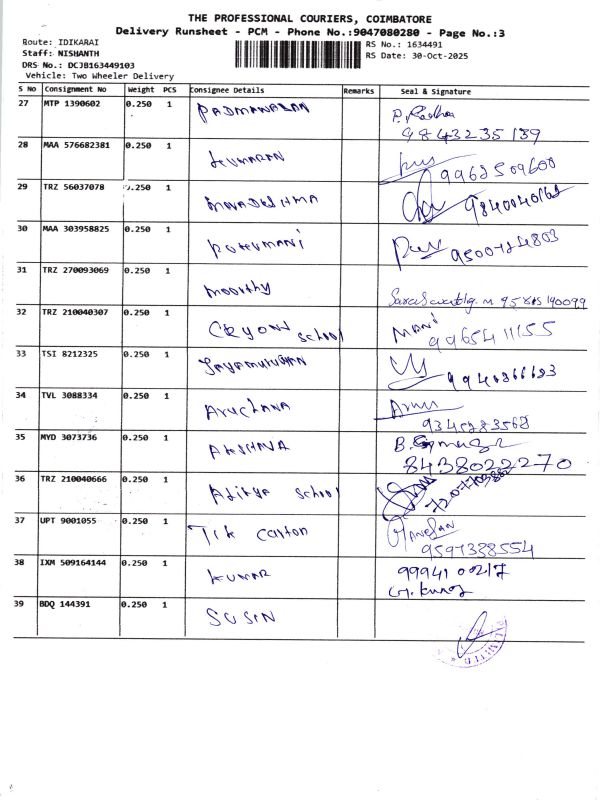 THE PROFESSIONAL COURIERS, COIMBATORE
Delivery Runsheet - PCM - Phone No.:9047080280 - Page No.:3
Route: IDIKARAI
Staff: NISHANTH
DRS No.: DCJB163449103
Vehicle: Two Wheeler Delivery
RS No.: 1634491
RS Date: 30-Oct-2025
S No Consignment No Weight PCS Consignee Details Remarks Seal & Signature
27 MTP 1390602 0.250 1 PADMANABAN P. Radha
9843235139
28 MAA 576682381 0.250 1 KUMARAN 9962509600
29 TRZ 56037078 0.250 1 9840040168
30 MAA 303958825 0.250 1 9500724803
31 TRZ 270093069 0.250 1 Moorthy
32 TRZ 210040307 0.250 1 school MANI
9965411155
33 TSI 8212325 0.250 1 JAYAMURUGAN
34 TVL 3088334 0.250 1 ARUCHANA
9345283568
35 MYD 3073736 0.250 1 AKSHAYA
8438022270
36 TRZ 210040666 0.250 1 Aditya school
37 UPT 9001055 0.250 1
9597338554
38 IXM 509164144 0.250 1 KUMAR 9994100217
39 BDQ 144391 0.250 1 SUSIN